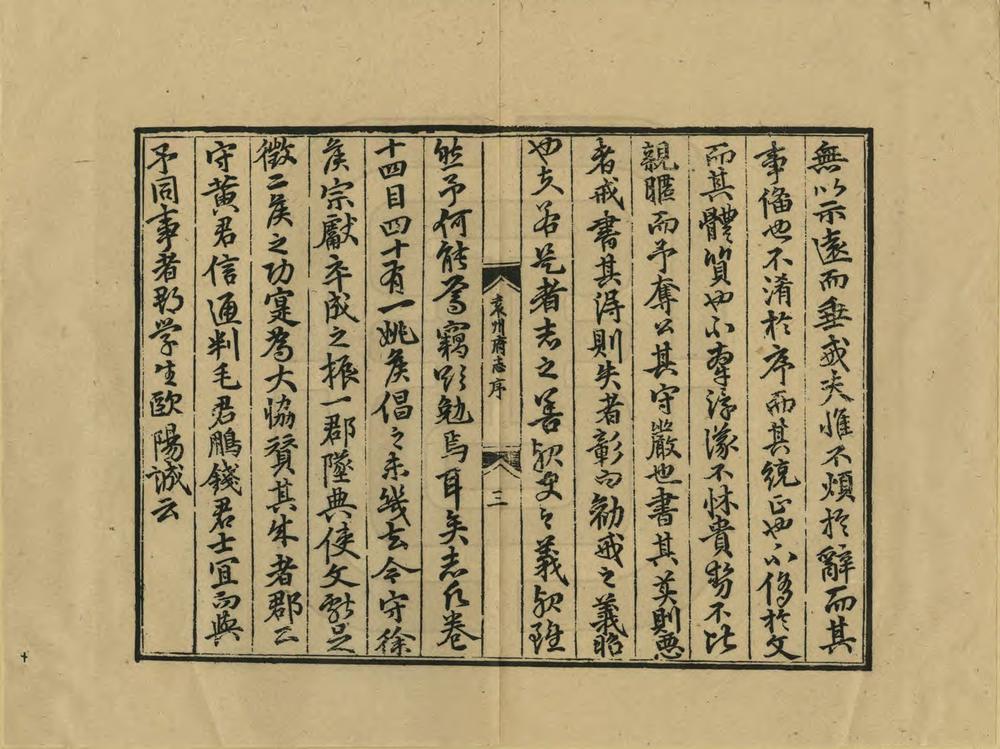 無以示遠而垂戒夫惟不煩於辭而其
事備也不淆於序而其統正也不侈於文
而其體質也不牽浮議不怵貴勢不比
親暱而予奪公其守嚴也書其美則惡
者戒書其得則失者彰而勸戒之義昭
也夫若是者志之善歟史之義歟雖
袁州府志序
三
然予何能焉竊以勉焉耳矣志凡卷
十四目四十有一姚侯倡之未幾去今守徐
侯宗獻卒成之振一郡墜典使文獻足
徵二侯之功寔為大協贊其成者郡
守黃君信通判毛君鵬錢君士宜而與
予同事者郡學生歐陽誠云